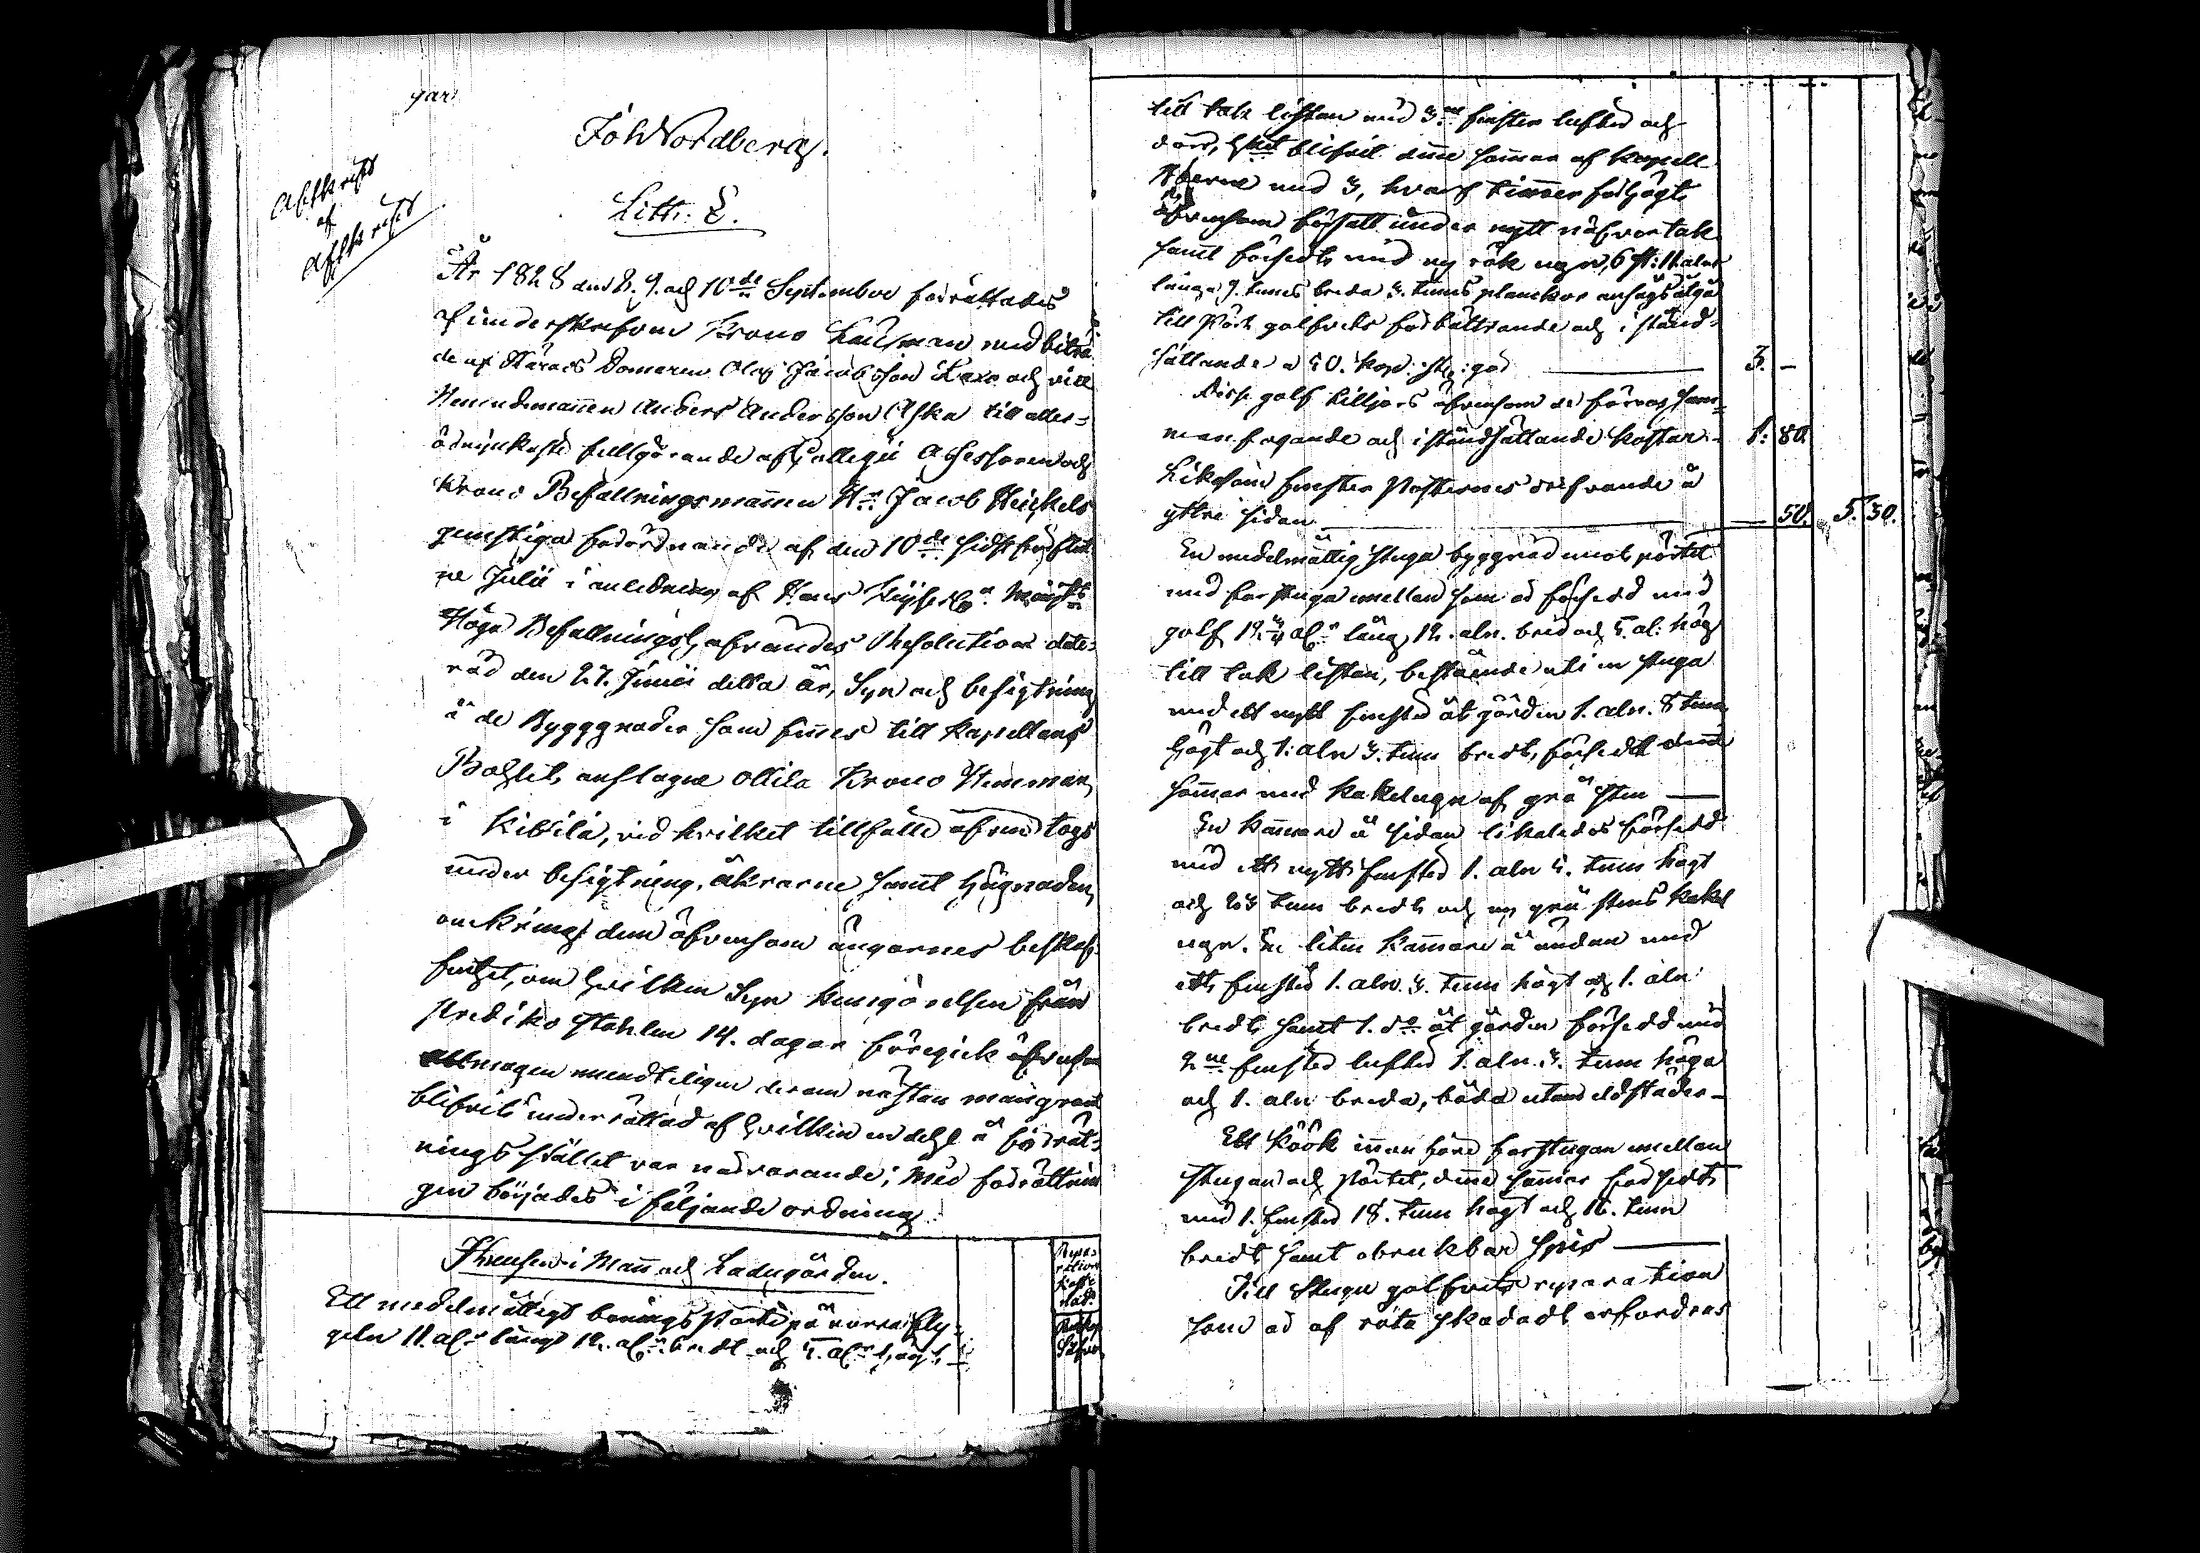 gar
Joh Nordberg.
Afskrift
af
afskrift
Litt: E.
År 1828 den 8. 9. och 10de September förrättades
af underskrefven Krono Länsman med biträ-
de af Härads Domaren Olof Jacobsson Taxo och vice
Nemndemannen Anders Andersson Aska till aller-
ödmjukaste fullgörande af Collegii Assessoren och
Krono Befallningsmannen H:r Jacob Heickels
gunstiga förordnande af den 10de sidst förflut-
ne Julii i anledning af Hans Kejserl:a Maij:ts
Höga Befallningshafvandes Resolution date-
rad den 27. Junii detta år, Syn och besigtning
å de Byggnader som finnes till Kapellans
Bohlet, anslagne Ollila Krono Hemman,
i Kittilä, vid hvilket tillfälle äfven togs
under besigtning, åkrarne samt hägnaden,
omkring dem äfvensom ängarnes beskaf-
fenhet, om hvilken Syn kungörelsen från
Prediko stohlen 14. dagar föregick äfvensom
allmogen mundteligen derom nästan mangrant
blifvit underrättad af hvilken en dehl å förrätt-
nings stället var närvarande; Med förrättnin
gen börjades i följande ordning.
Husen i Mann och Ladugården.
Repa-
rations
kost-
nad.
Ett medelmåttigt bonings Pörte på norra fly-
geln 11. al:r långt 12. al:r bredt och 5. al:r högt
till tak listan med 3:ne fenster lufter och
dörr, hvilket blifvit dinne sommar af Kapell
med 3, hvarf timmer förhögt
äfvensom försatt under nytt näfver tak
samt försedt med ny rök ugn, 6 st: 11 alnar
långa 9. tums breda 3. tums plankor ansågs åtgå
till Pört golfvets förbättrande och i stånd-
sättande a 50. kop: st: gör 3. -
Dess golf tilljors äfvensom de förras sam-
manfogande och iståndsättande kostar 1: 80.
Likasom fenster Posternes drefvande å
yttre sidan 50. 5. 30.
En medelmåttig stuga byggnad emot pörtet
med farstuga mellan som är försedd med
golf 19 3/4 al:r lång 12. aln. bred och 5. al: hög
till tak listan, bestående uti en stuga
med ett nytt fenster åt gården 1. aln. 8 tum
högt och 1: aln 3. tum bredt, försedt denna
sommar med Kakelugn af grå sten
En kammare å sidan likaledes försedd
med ett nytt fenster 1. aln 5. tum högt
och 23 tum bredt och ny grå stens kakel
ugn. En liten Kammare å ändan med
ett fenster 1. aln. 3. tum högt och 1. aln
bredt samt 1. d:o åt gården försedd med
2:ne fenster lufter 1. aln. 3. tum höga
och 1. aln breda, båda utan eldstäder
Ett Köök innanföre farstugan mellan
stugan och Pörtet, denna sommar försedt
med 1. fenster 18. tum högt och 16. tum
bredt samt obrukbar spis
Till Stugu golfvets reparation
som är af röta skadadt erfordras